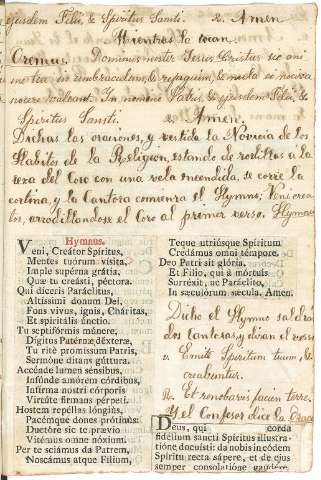 ejusdem Filii, & Spiritus Sancti. R. Amen
Mientras la tocan
Oremus. Dominus noster Jesus Cristus sit ani
mo tuo in umbraculum, & refugium, & nocta
nocere valeant. In nomine Patris, & ejusdem Filii, &
Spiritus Sancti. R. Amen.
Dichas las oraciones, y vestida la Novicia de los
Habitos de la Religion, estando de rodillas á la
rexa del Coro con una vela encendida, se corre la
cortina, y la Cantora comienza el Hymno; Veni crea
tor, arrodillandose el Coro al primer verso. Hymno
Hymnus.
Veni, Creátor Spíritus,
Mentes tuórum vísita,
Imple supérna grátia,
Quæ tu creásti, péctora.
Qui díceris Paráclitus,
Altíssimi donum Dei,
Fons vivus, ignis, Cháritas,
Et spiritális únctio.
Tu septifórmis múnere,
Dígitus Patérnæ déxteræ,
Tu ritè promíssum Patris,
Sermóne ditans gúttura.
Accénde lumen sénsibus,
Infúnde amórem córdibus,
Infírma nostri córporis
Virtúte firmans pérpeti.
Hostem repéllas lóngiùs,
Pacémque dones prótinùs:
Ductóre sic te prævio
Vitémus omne nóxium.
Per te sciámus da Patrem,
Noscámus atque Fílium,
Teque utriúsque Spíritum
Credámus omni témpore.
Deo Patri sit glória,
Et Fílio, qui à mórtuis
Surréxit, ac Paráclito,
In sæculórum sæcula. Amen.
Dicho el Hymno saldrán
dos Cantoras, y diran el verso
v. Emitte Spiritum tuum, &
creabuntur.
R. Et renobavis faciem terre.
Y el Confesor dice la Orac
Deus, qui corda
fidélium sancti Spíritus illustra-
tióne docuísti: da nobis in eódem
Spíritu recta sápere, et de ejus
semper consolatióne gaudére.